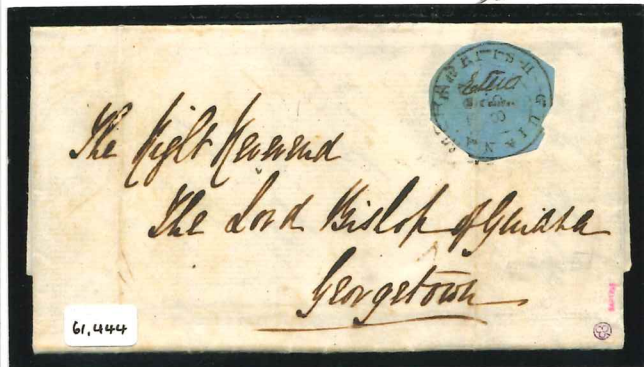 BRITISH GUIANA
The Right Reverend
The Lord Bishop of Guiana
Georgetown
61,444